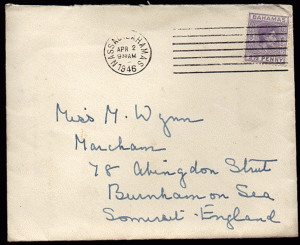 NASSAU BAHAMAS
APR 2
9 30 AM
1946
BAHAMAS
PENNY
Miss M. Wynn
Marcham
78 Abingdon Street
Burnham on Sea
Somerset - England